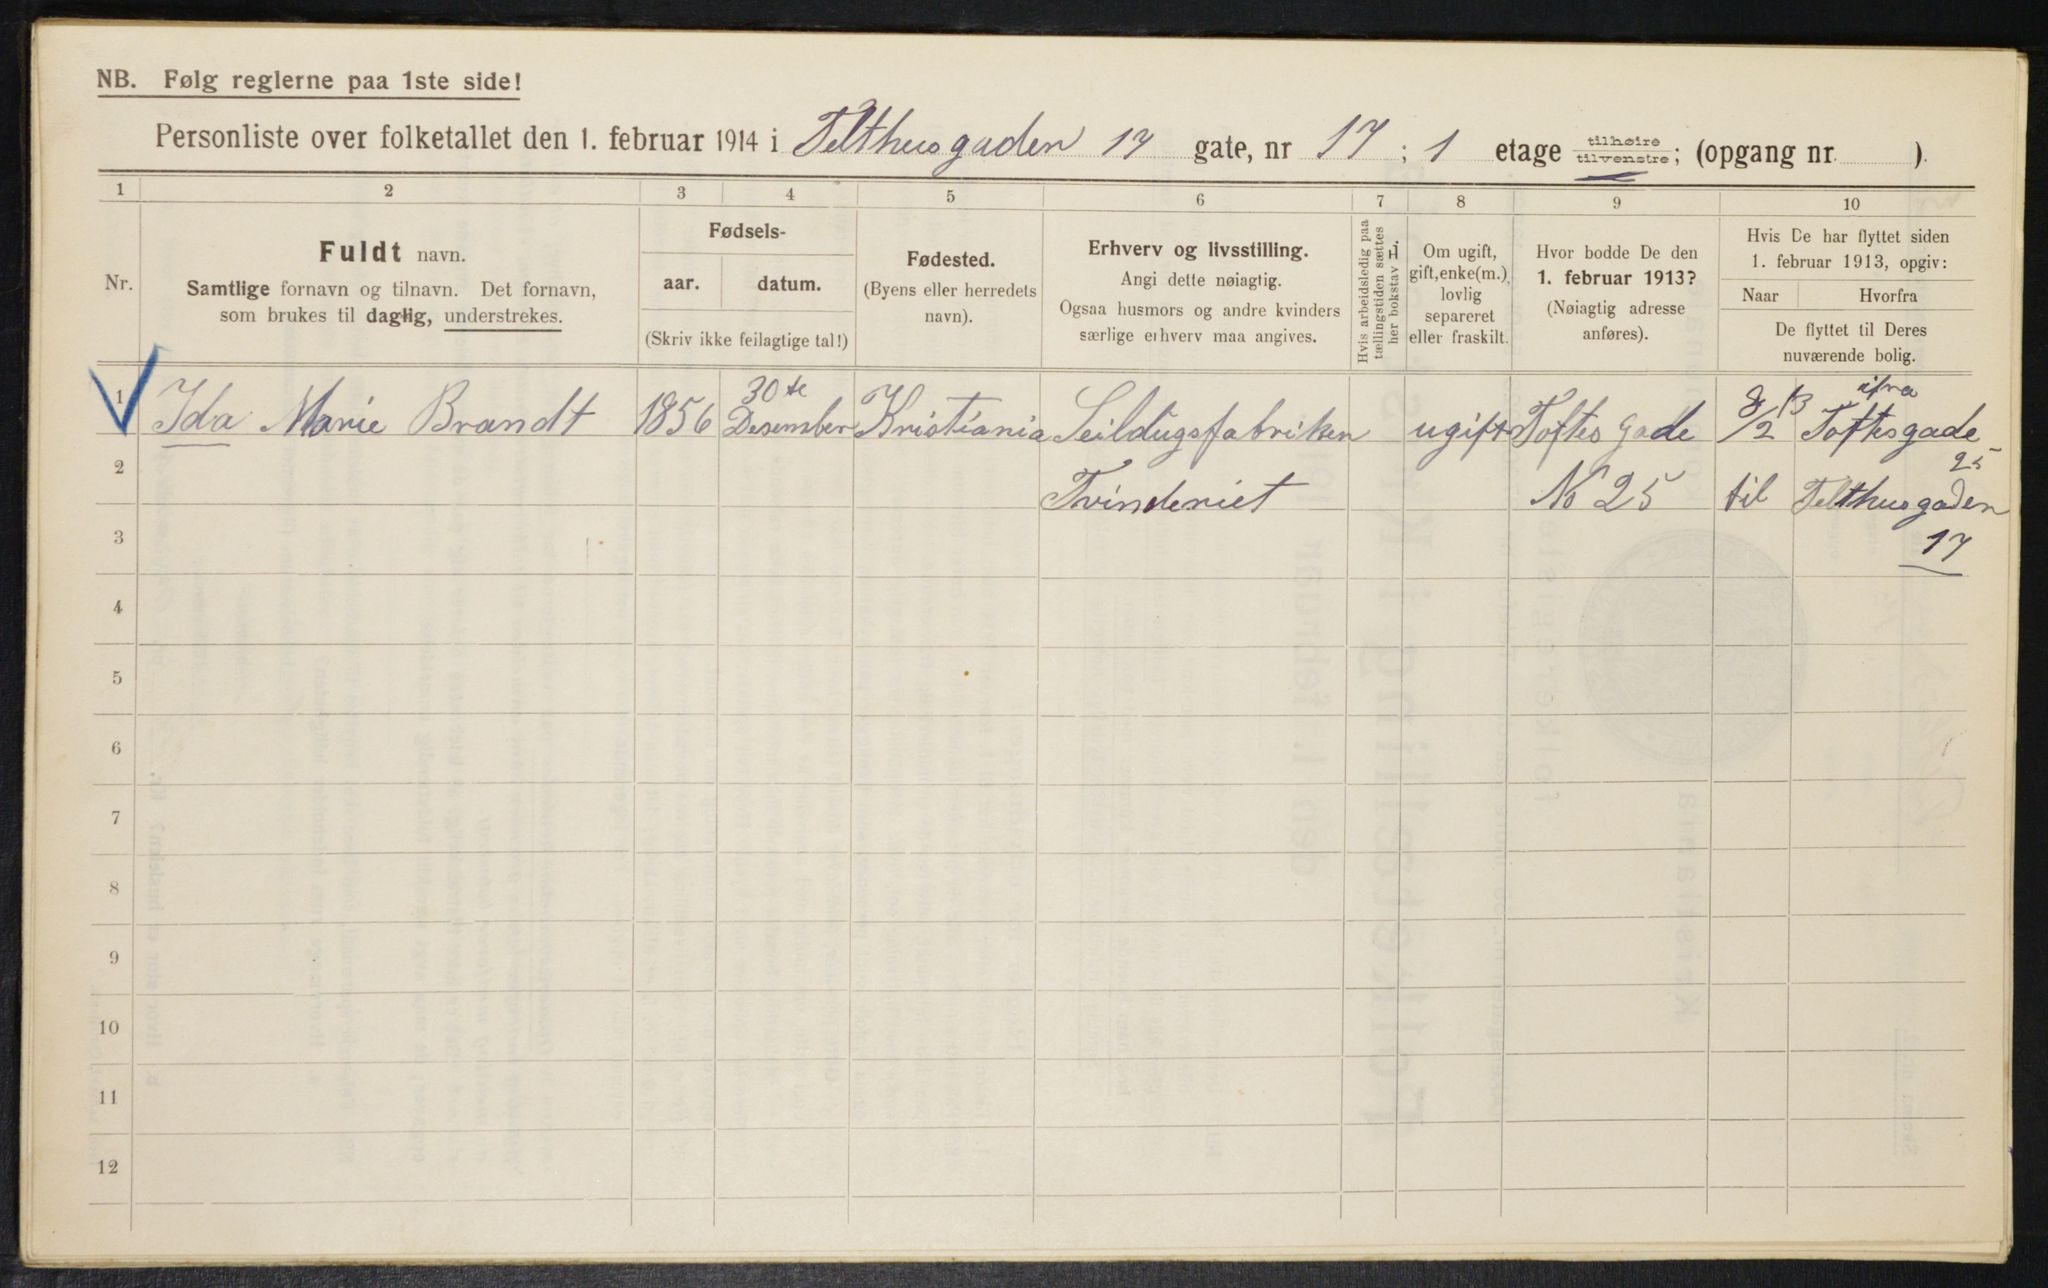 NB. Følg reglerne paa 1ste side!
Personliste over folketallet den 1. februar 1914 i Telthusgaden 17 gate, nr 17 ; 1 etage tilhøire tilvenstre; (opgang nr. ).
1 2 3 4 5 6 7 8 9 10
Nr.
Fuldt navn.
Samtlige fornavn og tilnavn. Det fornavn,
som brukes til daglig, understrekes.
Fødsels-
aar. datum.
(Skriv ikke feilagtige tal!)
Fødested.
(Byens eller herredets
navn).
Erhverv og livsstilling.
Angi dette nøiagtig.
Ogsaa husmors og andre kvinders
særlige erhverv maa angives.
Hvis arbeidsledig paa
tællingstiden sættes
her bokstav H.
Om ugift,
gift, enke(m.),
lovlig
separeret
eller fraskilt.
Hvor bodde De den
1. februar 1913?
(Nøiagtig adresse
anføres).
Hvis De har flyttet siden
1. februar 1913, opgiv:
Naar Hvorfra
De flyttet til Deres
nuværende bolig.
30te
1 Ida Marie Brandt 1856 Desember Kristiania Seildugsfabriken ugift Toftes Gade 8/2 13 ifra Toftesgade
25
2 Tvinderiet No 25 til Telthusgaden
3 17
4
5
6
7
8
9
10
11
12